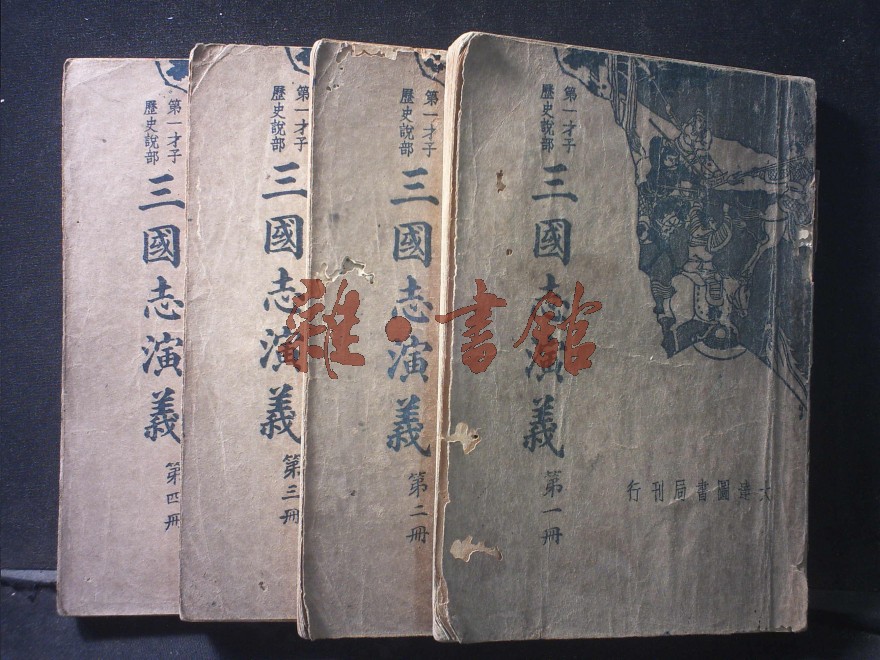 第一才子
歷史說部
三國志演義
第一冊
大達圖書局刊行
第一才子
歷史說部
三國志演義
第二冊
第一才子
歷史說部
三國志演義
第三冊
第一才子
歷史說部
三國志演義
第四冊
雜·書館